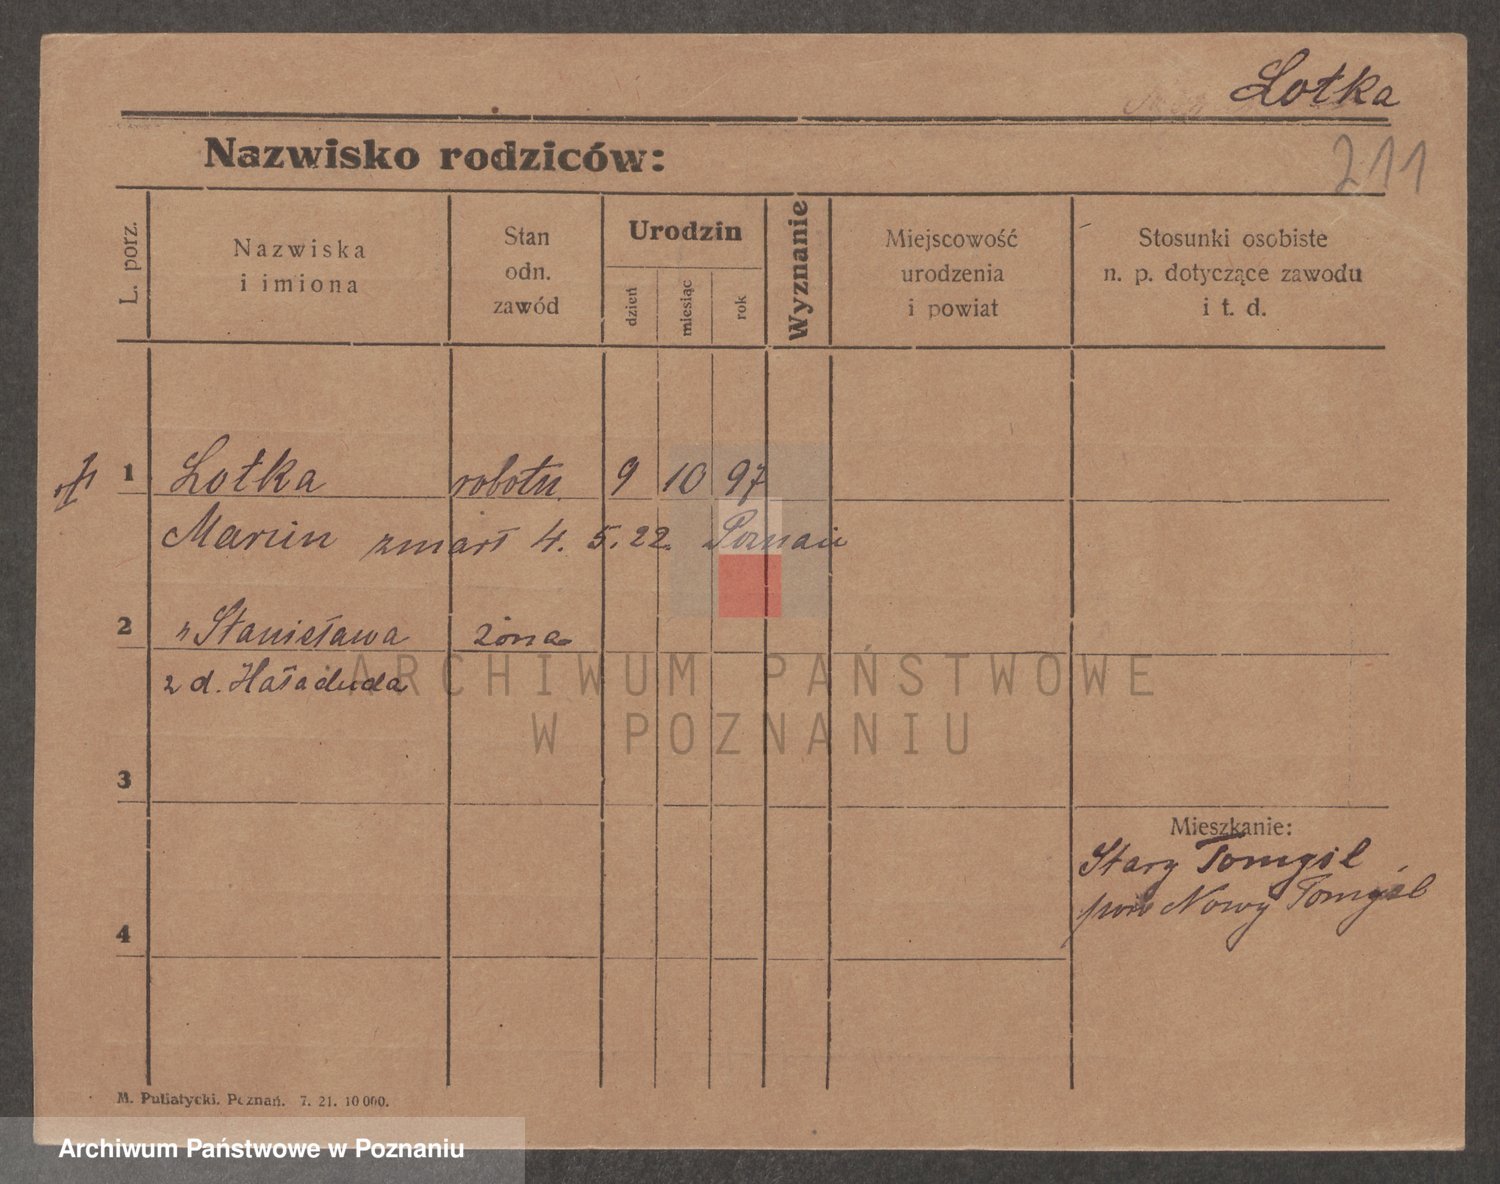 Lotka
211
Nazwisko rodziców:
L. porz.
Nazwiska
i imiona
Stan
odn.
zawód
Urodzin
dzień
miesiąc
rok
Wyznanie
Miejscowość
urodzenia
i powiat
Stosunki osobiste
n. p. dotyczące zawodu
i t. d.
1 Lotka robotn. 9 10 97
Marcin zmarł 4. 5. 22. Poznań
2 " Stanisława żona
z d. Hała duda
3
Mieszkanie:
Stary Tomyśl
pow Nowy Tomyśl
4
M. Putiatycki. Poznań. 7. 21. 10 000.
ARCHIWUM PAŃSTWOWE
W POZNANIU
Archiwum Państwowe w Poznaniu